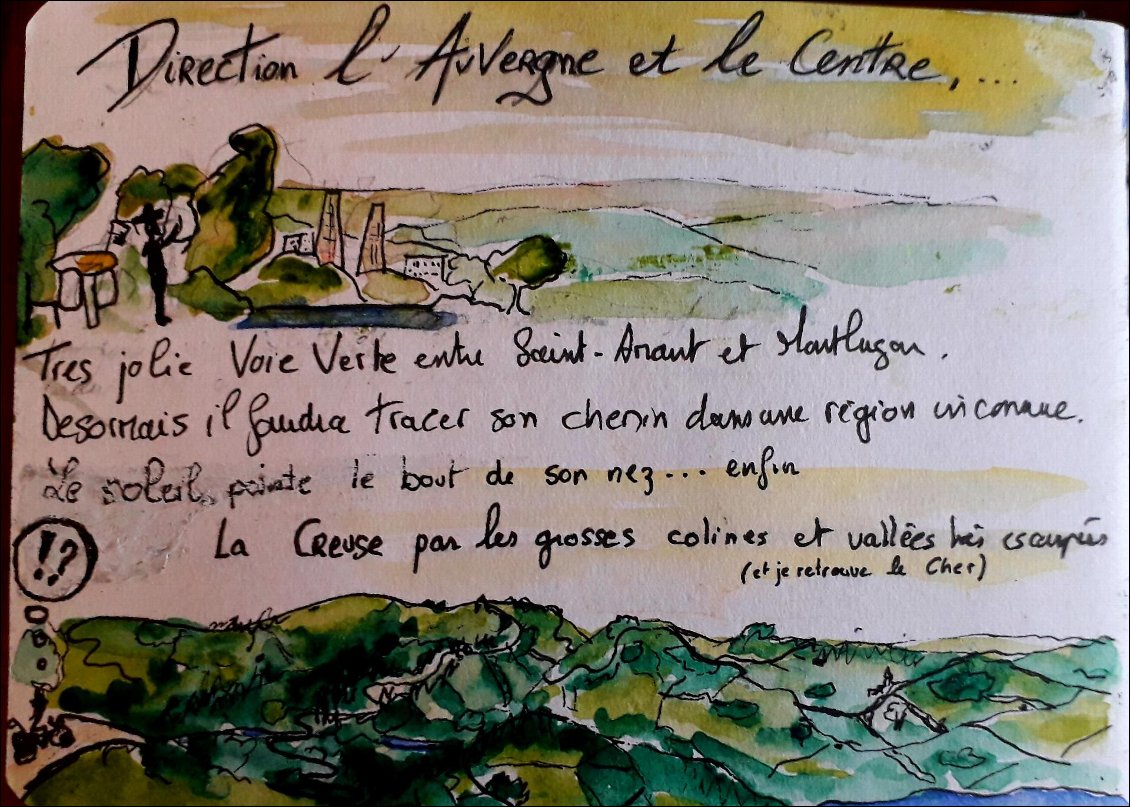 Direction l'Auvergne et le Centre,...
Tres jolie Voie Verte entre Saint-Amant et Montluçon.
Desormais il faudra tracer son chemin dans une région inconnue.
Le soleil pointe le bout de son nez... enfin
La Creuse par les grosses colines et vallées très escarpées
(et je retrouve le Cher)
!?